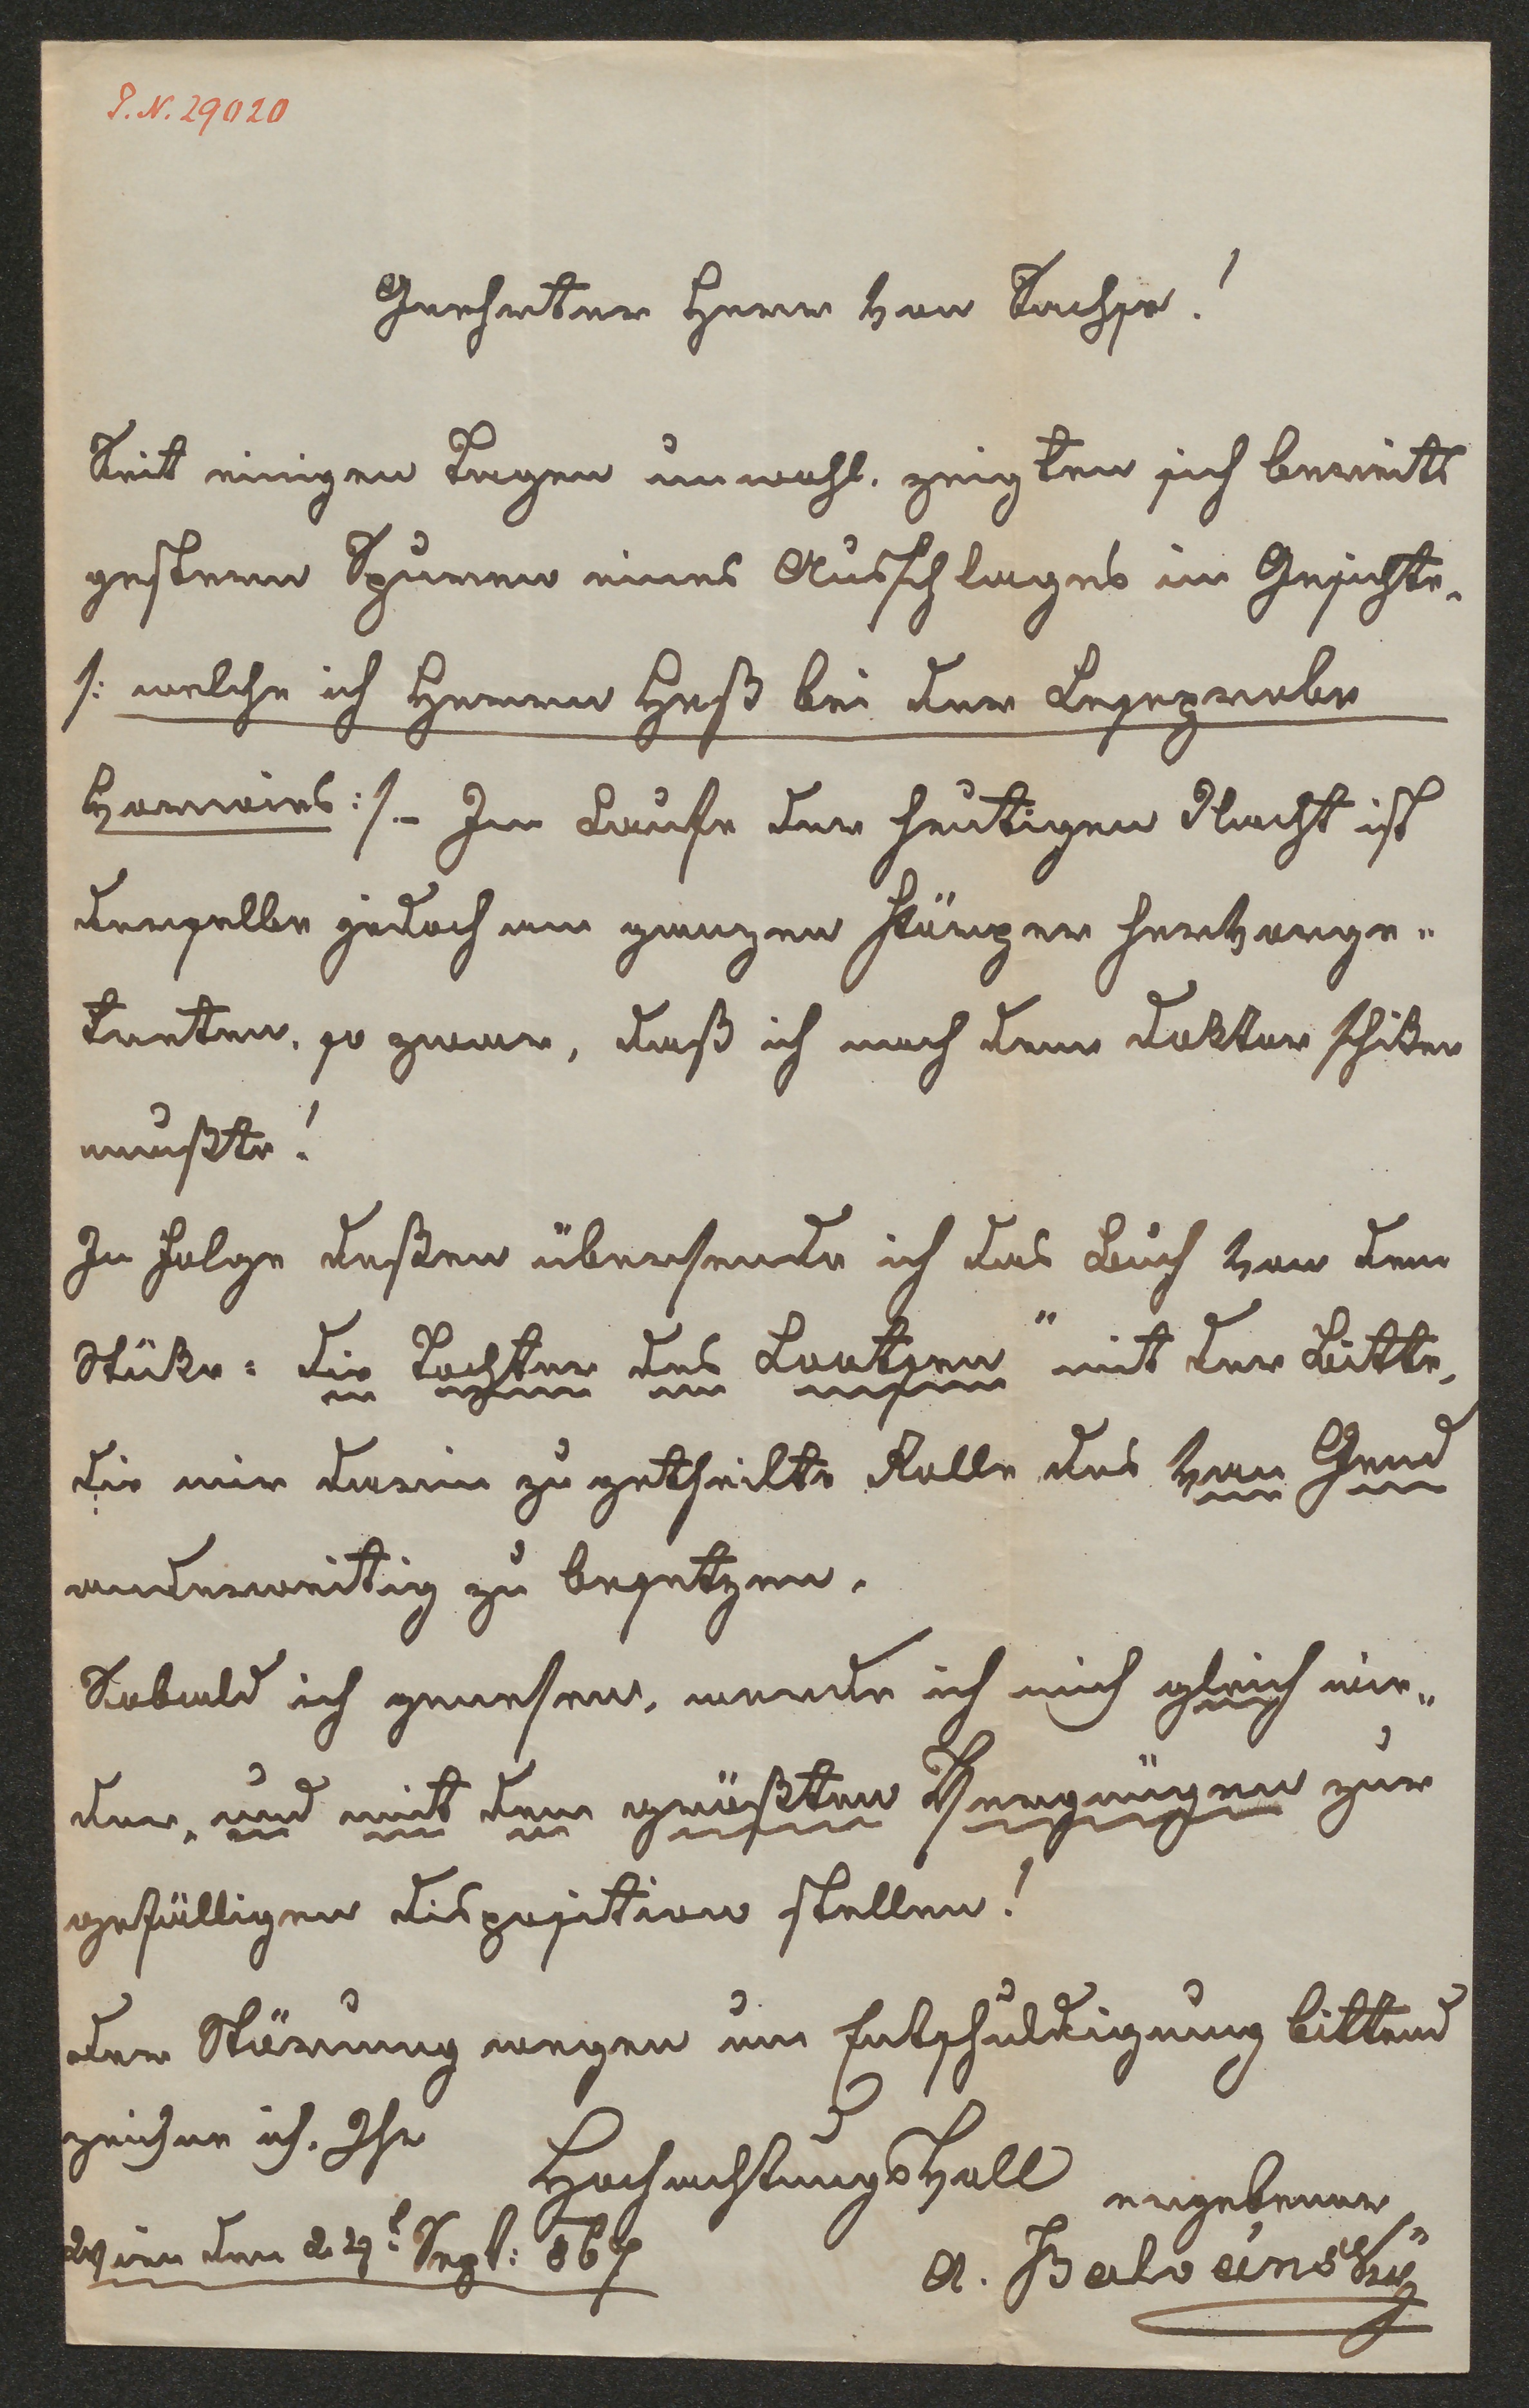 I.N. 29020
Geehrter Herr von Sachse!
Seit einigen Tagen unwohl, zeigten sich bereits
gestern Spuren eines Ausschlages im Gesichte,
/: welche ich Herrn Heß bei der Leseprobe
:/.– Im Laufe der heutigen Nacht ist
derselbe jedoch am ganzen Körper hervorge„
treten, so zwar, daß ich nach dem Doktor schiken
mußte!
In Folge deßen übersende ich das Buch von dem
Stüke: die Tochter des Lootsen" mit der Bitte,
die mir darin zugetheilte Rolle des van Gend
anderweitig zu besetzen.
Sobald ich genesen, werde ich mich gleich wie„
der, und mit dem größten Vergnügen zur
gefälligen Disposition stellen!
Der Störung wegen um Entschuldigung bittend
zeichne ich, Ihr
Hochachtungsvoll ergebener
Wien den 29t Sept: 867
A.